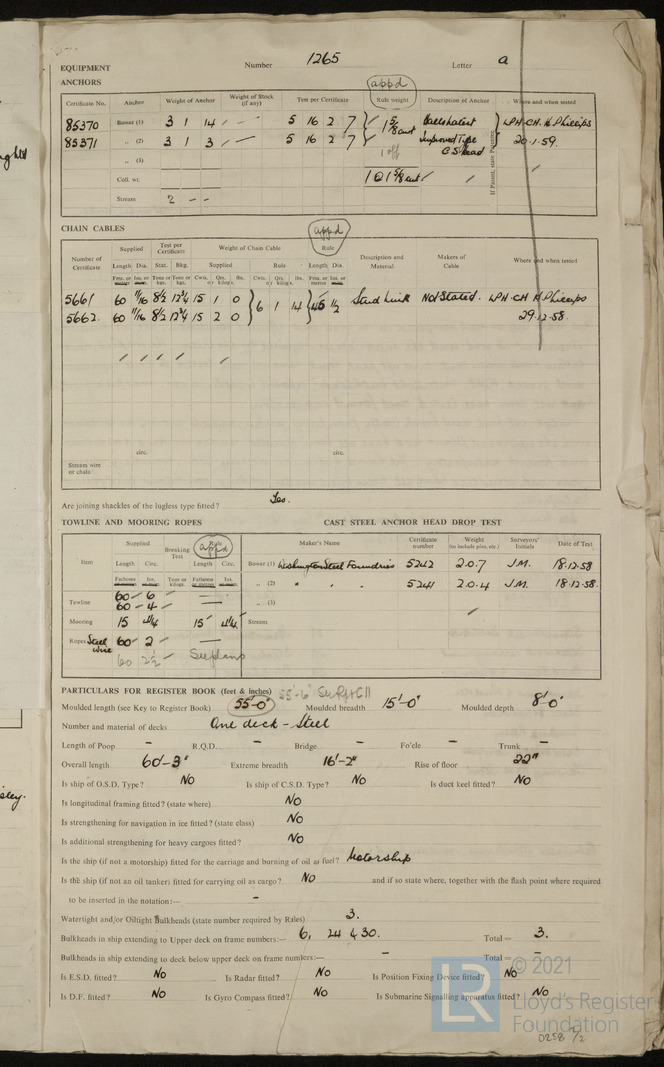 EQUIPMENT Number 1265 Letter a
ANCHORS appd
Certificate No. Anchor Weight of Anchor Weight of Stock (if any) Test per Certificate Rule weight Description of Anchor Where and when tested
85370 Bower (1) 3 1 14 5 16 2 7 LPH. CH. H. Phillips
85371 „ (2) 3 1 3 5 16 2 7 Improved Type 20.1.59.
C.S. Head
„ (3)
If Patent, state Patentee
Coll. wt.
Stream 2 - -
CHAIN CABLES appd
Number of Certificate Supplied Test per Certificate Weight of Chain Cable Rule Description and Material Makers of Cable Where and when tested
Length Dia. Stat. Bkg. Supplied Rule Length Dia.
5661 60 11/16 8½ 12¾ 15 1 0 6 1 14 45 ½ Stud Link Not Stated. LPH. CH H. Phillips
5662. 60 11/16 8½ 12¾ 15 2 0 29.12.58.
circ. circ.
Stream wire or chain
Are joining shackles of the lugless type fitted? Yes.
TOWLINE AND MOORING ROPES CAST STEEL ANCHOR HEAD DROP TEST
Item Supplied Breaking Test Rule appd Maker's Name Certificate number Weight (to include pins, etc.) Surveyors' Initials Date of Test
Length Circ. Length Circ.
Fathoms or metres Ins. Tons or kilogs. Fathoms or metres Ins.
Bower (1) Washington Steel Foundries 5242 2.0.7 J.M. 18.12.58
„ (2) " " " 5241 2.0.4 J.M. 18.12.58.
„ (3)
60 - 6 -
Towline 60 - 4 -
Mooring 15 4¼ 15 4¼ Stream
Ropes Steel wire 60 - 2 -
60 2½ - See plans
PARTICULARS FOR REGISTER BOOK (feet & inches) 55'-6"
Moulded length (see Key to Register Book) 55'-0" Moulded breadth 15'-0" Moulded depth 8'-0"
Number and material of decks One deck - Steel
Length of Poop - R.Q.D. - Bridge - Fo'cle - Trunk -
Overall length 60'-3" Extreme breadth 16'-2" Rise of floor 22"
Is ship of O.S.D. Type? No Is ship of C.S.D. Type? No Is duct keel fitted? No
Is longitudinal framing fitted? (state where) No
Is strengthening for navigation in ice fitted? (state class) No
Is additional strengthening for heavy cargoes fitted? No
Is the ship (if not a motorship) fitted for the carriage and burning of oil as fuel? Motorship
Is the ship (if not an oil tanker) fitted for carrying oil as cargo? No and if so state where, together with the flash point where required
to be inserted in the notation:— -
Watertight and/or Oiltight Bulkheads (state number required by Rules) 3.
Bulkheads in ship extending to Upper deck on frame numbers:— 6, 24 & 30. Total = 3.
Bulkheads in ship extending to deck below upper deck on frame numbers:— - Total = -
Is E.S.D. fitted? No Is Radar fitted? No Is Position Fixing Device fitted? No
Is D.F. fitted? No Is Gyro Compass fitted? No Is Submarine Signalling apparatus fitted? No
© 2021
LR
Lloyd's Register
Foundation
0258 2/2